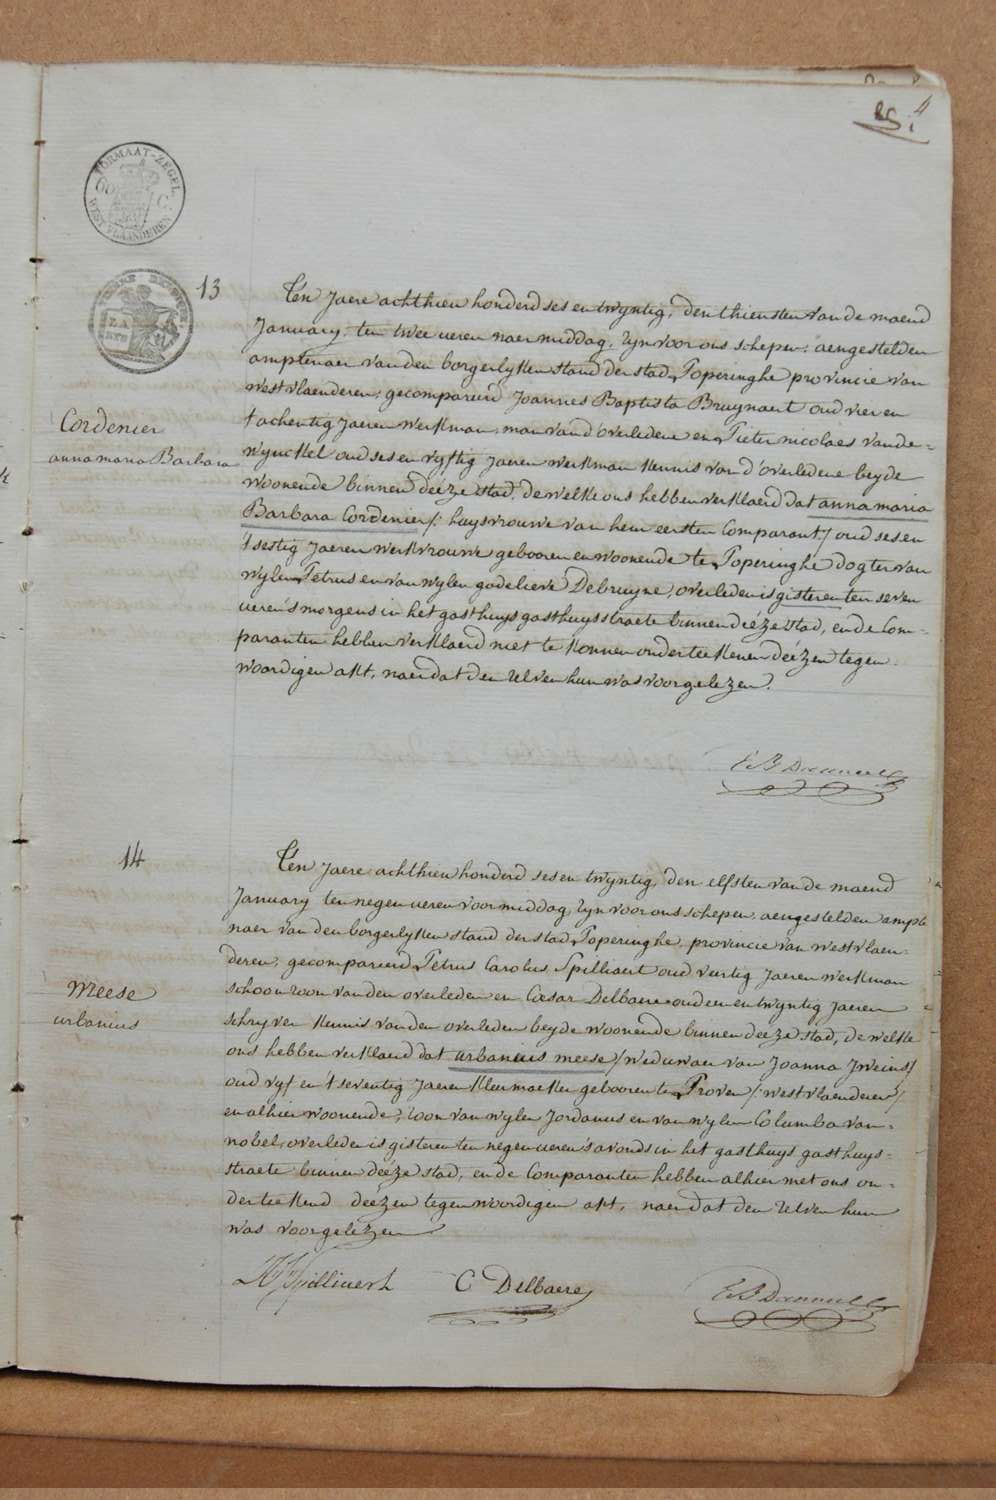 4
FORMAAT-ZEGEL
60 C.
WEST VLAANDEREN
13
Ten Jaere achthien honderd ses en twyntig, den thiensten van de maend
January, ten twee ueren naer middag, zyn voor ons schepen, aengestelden
amptenaer van den borgerlyken stand der stad Poperinghe provincie van
westvlaenderen, gecompareerd Joannes Baptista Bruynaert oud vier en
t'achentig Jaeren werkman, man van d'overledene en Pieter nicolaes vande-
wynckel oud ses en vyftig Jaeren werkman kennis van d'overledene beyde
woonende binnen deéze stad, de welke ons hebben verklaerd dat anna maria
Barbara Cordenier /: huysvrouwe van hem eersten Comparant,/ oud ses en
't sestig Jaeren werkvrouwe gebooren en woonende te Poperinghe dogter van
wylen Petrus en van wylen godelieve Debruyne, overleden is gisteren ten seven
ueren s'morgens in het gasthuys gasthuysstraete binnen deéze stad, en de Com-
paranten hebben verklaerd niet te konnen onderteekenen deézen tegen-
woordigen akt, naer dat den zelven hun was voorgelezen.
Cordenier
anna maria Barbara
14
Ten Jaere achthien honderd ses en twyntig, den elfsten van de maend
January ten negen ueren voormiddag, zyn voor ons schepen aengestelden ampte
naer van den borgerlyken stand der stad Poperinghe, provincie van westvlaen-
deren, gecompareerd Petrus Carolus Spilliaert oud veertig Jaeren werkman
schoonzoon van den overleden en Cæsar Delbaere oud een en twyntig Jaeren
schryver kennis van den overleden beyde woonende binnen deeze stad, de welke
ons hebben verklaerd dat urbanius meese /weduwaer van Joanna Jweins/
oud vyf en 't seventig Jaeren kleermaeker gebooren te Proven /:westvlaenderen/
en alhier woonende, zoon van wylen Jordanus en van wylen Columba van-
nobel, overleden is gisteren ten negen ueren s'avonds in het gasthuys gasthuys-
straete binnen deeze stad, en de Comparanten hebben alhier met ons on-
derteekend deezen tegenwoordigen akt, naer dat den zelven hun
was voorgelezen
Meese
urbanius
C Delbaere